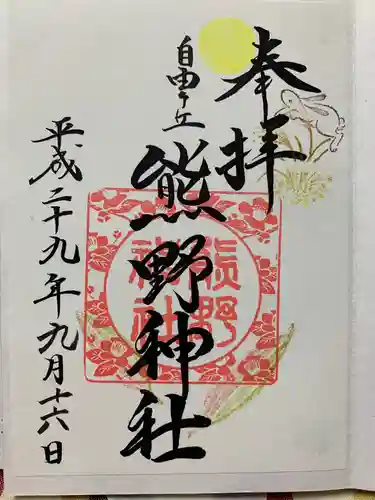 奉拝
自由ヶ丘
熊野神社
平成二十九年九月十六日
熊野
神社